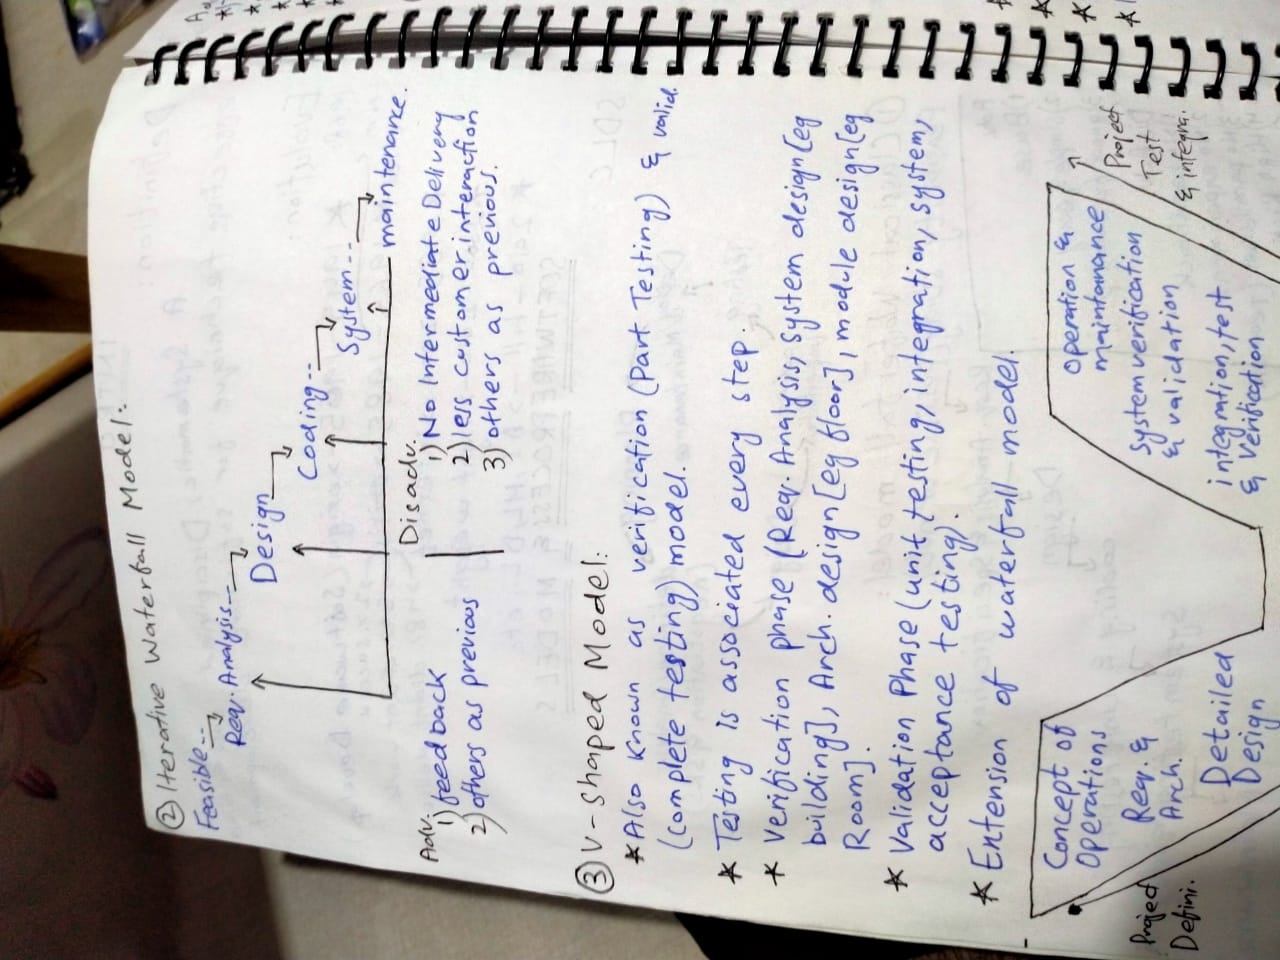 ② Iterative Waterfall Model:
Feasible--
Req. Analysis--
Design
Coding--
System--
maintenance.
Adv.
1) feedback
2) others as previous
Disadv.
1) No Intermediate Delivery
2) less customer interaction
3) others as previous.
③ V-shaped Model:
* Also Known as verification (Part Testing) & valid.
(complete testing) model.
* Testing is associated every step.
* Verification phase (Req. Analysis, system design [eg
building], Arch. design [eg floor], module design [eg
Room].
* Validation Phase (unit testing, integration, system,
acceptance testing).
* Extension of waterfall model.
Concept of
Operations
Req. &
Arch.
Detailed
Design
Project
Defini.
Operation &
maintanance
System verification
& validation
integration, test
& Verification
Project
Test
& integra.